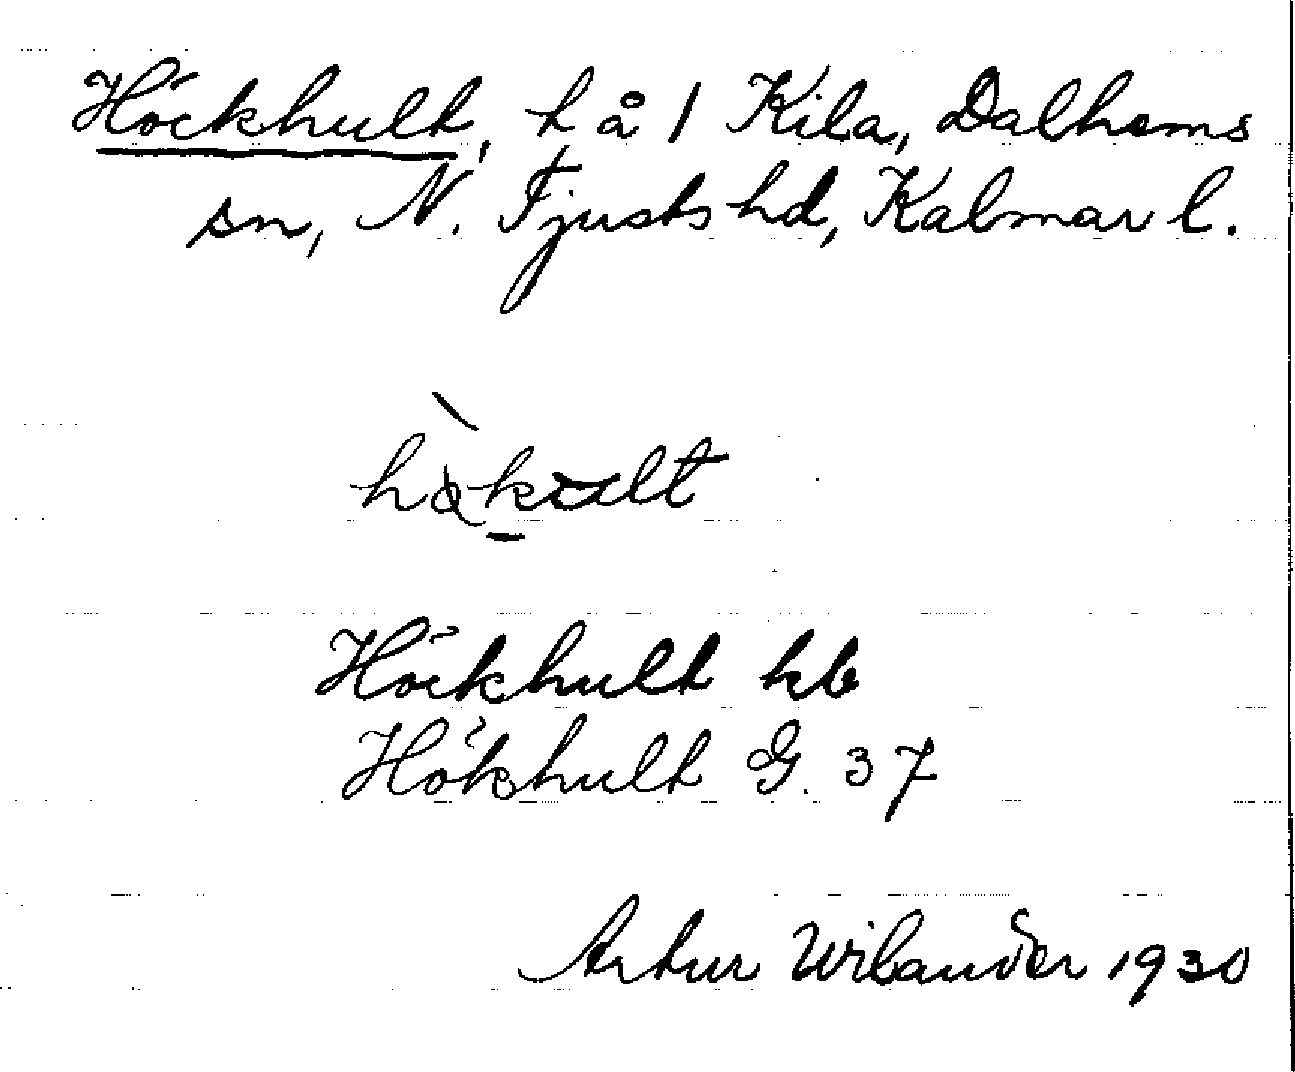 Höckhult, t å 1 Kila, Dalhems
sn, N. Tjusts hd, Kalmar l.
Höckhult kb
Hökhult G. 37
Artur Wilander 1930